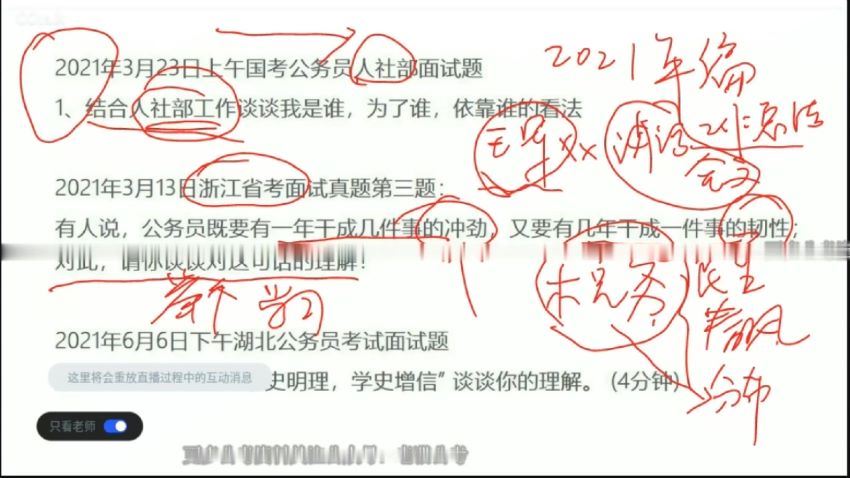 2021年3月23日上午国考公务员人社部面试题
1、结合人社部工作谈谈我是谁，为了谁，依靠谁的看法
2021年3月13日浙江省考面试真题第三题：
有人说，公务员既要有一年干成几件事的冲劲，又要有几年干成一件事的韧性；
对此，请你谈谈对这句话的理解！
2021年6月6日下午湖北公务员考试面试题
史明理，学史增信”谈谈你的理解。（4分钟）
这里将会重放直播过程中的互动消息
只看老师
2021年
学习
民生
分布